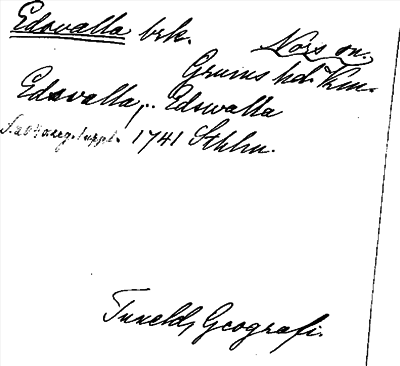 Edsvalla brk. Nors sn.
Grums hd. Vrm.
Edsvalla, Edswalla
1741 Sthlm.
Tuneld, Geografi.